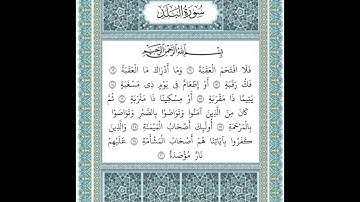 سُورَةُ البَلَدِ
بِسْمِ اللَّهِ الرَّحْمَنِ الرَّحِيمِ
فَلَا اقْتَحَمَ الْعَقَبَةَ ۝ وَمَا أَدْرَاكَ مَا الْعَقَبَةُ ۝
فَكُّ رَقَبَةٍ ۝ أَوْ إِطْعَامٌ فِي يَوْمٍ ذِي مَسْغَبَةٍ ۝
يَتِيمًا ذَا مَقْرَبَةٍ ۝ أَوْ مِسْكِينًا ذَا مَتْرَبَةٍ ۝ ثُمَّ
كَانَ مِنَ الَّذِينَ آمَنُوا وَتَوَاصَوْا بِالصَّبْرِ وَتَوَاصَوْا
بِالْمَرْحَمَةِ ۝ أُولَئِكَ أَصْحَابُ الْمَيْمَنَةِ ۝ وَالَّذِينَ
كَفَرُوا بِآيَاتِنَا هُمْ أَصْحَابُ الْمَشْأَمَةِ ۝ عَلَيْهِمْ
نَارٌ مُؤْصَدَةٌ ۝